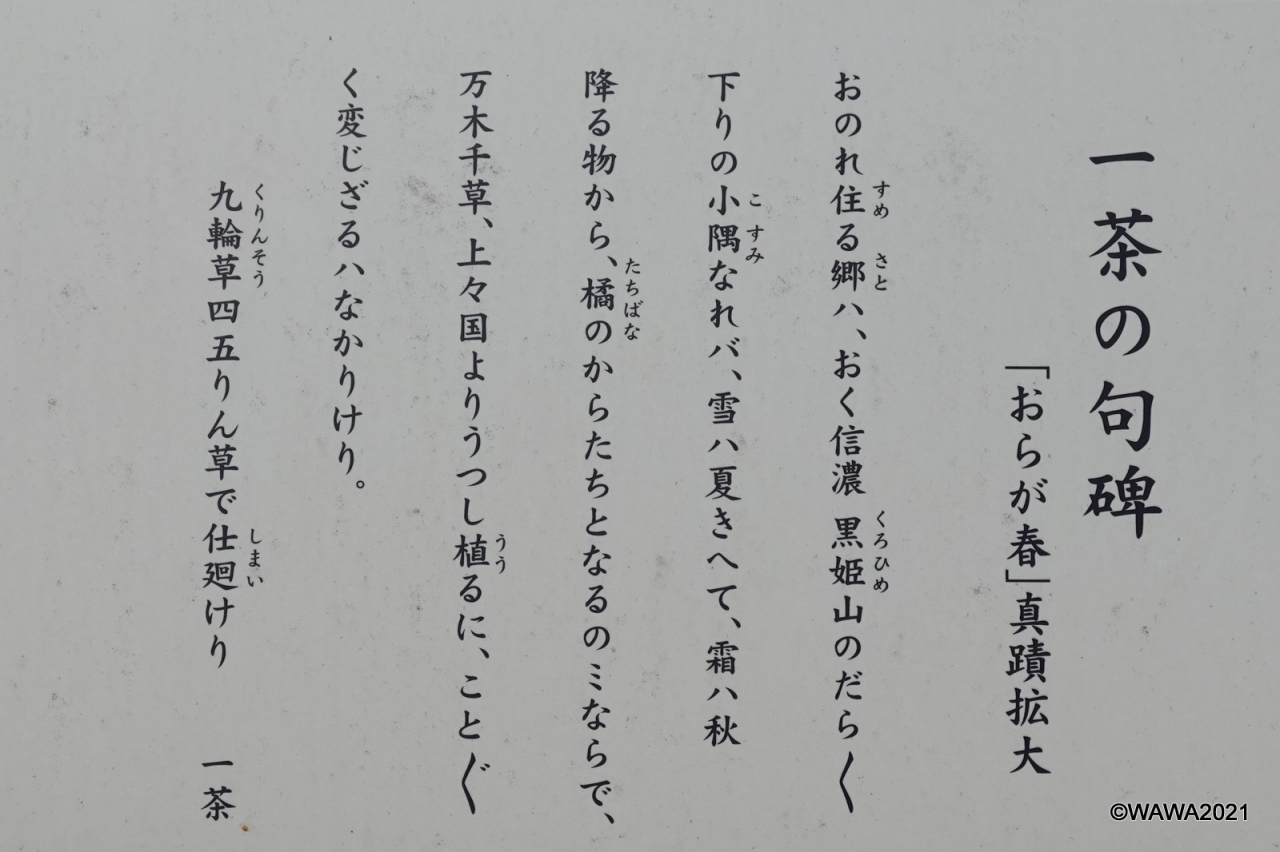 一茶の句碑
「おらが春」真蹟拡大
おのれ住る郷ハ、おく信濃 黒姫山のだら〱
すめ さと くろひめ
下りの小隅なれバ、雪ハ夏きへて、霜ハ秋
こ すみ
降る物から、橘のからたちとなるのミならで、
たちばな
万木千草、上々国よりうつし植るに、こと〲
うう
く変じざるハなかりけり。
九輪草四五りん草で仕廻けり 一茶
くりんそう しまい
©WAWA2021